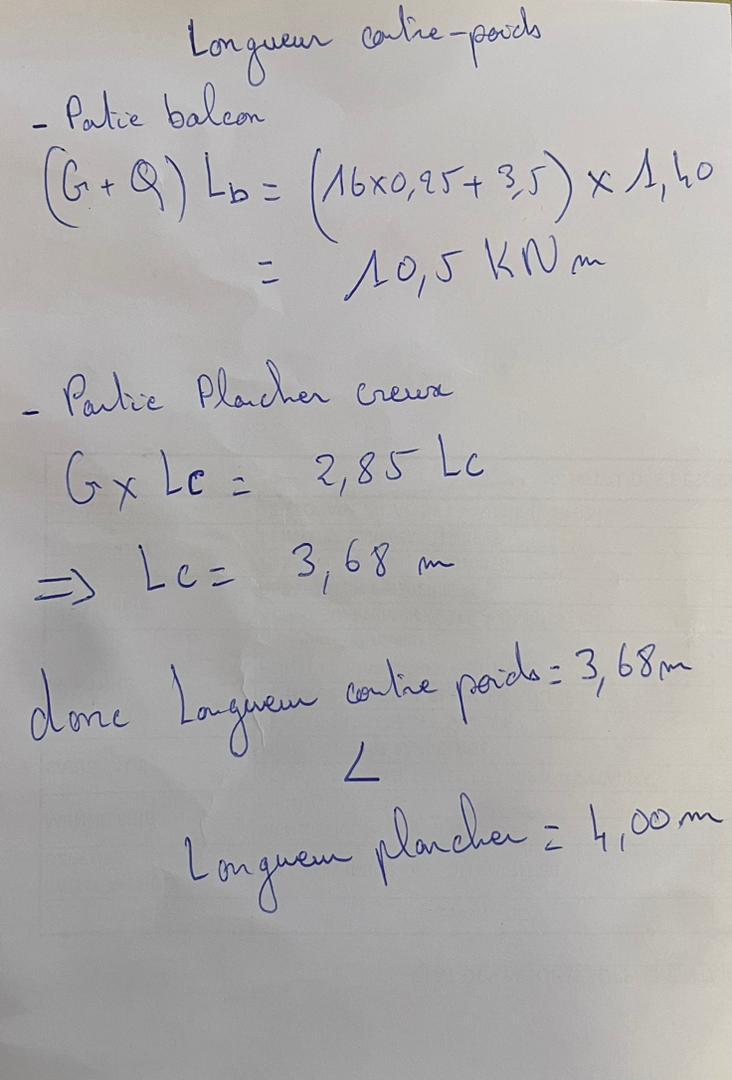 Longueur contre-poids
- Partie balcon
(G + Q) Lb = (16x0,25 + 3,5) x 1,40
= 10,5 KN m
- Partie Plancher creux
G x Lc = 2,85 Lc
=> Lc = 3,68 m
donc Longueur contre poids = 3,68m
<
Longueur plancher = 4,00m